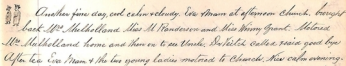 Another fine day, cool calm & cloudy. Eva & Mum at afternoon church, brought
back Mrs Mulholland Miss M Henderson and Miss Grant. Motored
Mrs Mulholland home and then on to see Uncle. Dr Keith called & said good bye
After tea Eva Mum & the two young ladies motored to Church, nice calm evening.